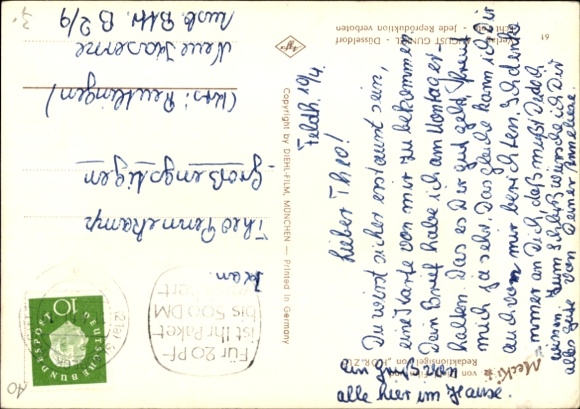 Feldh. 19/4.
Lieber Theo!
Du wirst sicher erstaunt sein,
eine Karte von mir zu bekommen
Dein Brief habe ich am Montag er-
halten. Das es Dir gut geht, freut
mich ja sehr. Das gleiche kann ich Dir
auch von mir berichten. Ich denke
immer an Dich, daß mußt Du doch
wissen. Zum Schluß wünsche ich Dir
alles Gute von Deiner Anneliese.
ein Gruß von
alle hier im Hause.
Mecki
Redaktionsigel von „HÖR ZU“
Verlag AUGUST GUNKEL · Düsseldorf
Echt Foto · Jede Reproduktion verboten
61
Agfa
Copyright by DIEHL-FILM, MÜNCHEN — Printed in Germany
Für 20 PF
ist Ihr Paket
bis 500 DM
versichert
DEUTSCHE BUNDESPOST
10
Theo Pennekamp
Großengstingen
(Krs: Reutlingen)
Neue Kaserne
Ausb. Bttr. B 2/9